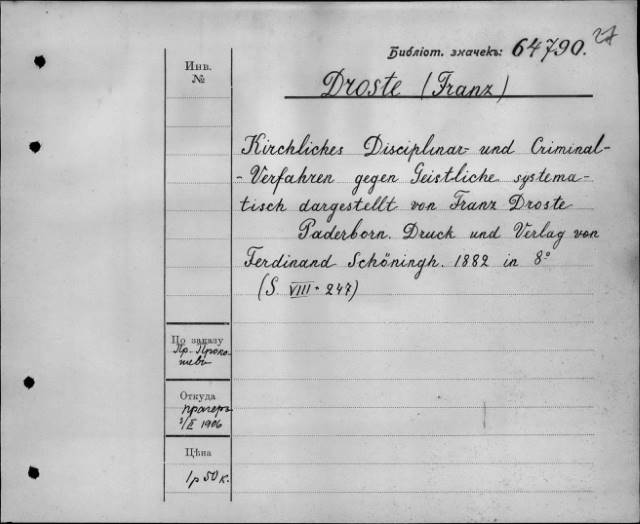 Библіот. значекъ: 64790. 27
Инв. №
Droste (Franz)
Kirchliches Disciplinar- und Criminal-
-Verfahren gegen Geistliche systema-
tisch dargestellt von Franz Droste
Paderborn. Druck und Verlag von
Ferdinand Schöningh. 1882 in 8°
(S. VIII + 247)
По заказу
Пр. Проко-
шевъ
Откуда
Прагеръ
2/II 1906
Цѣна
1 р 50 к.